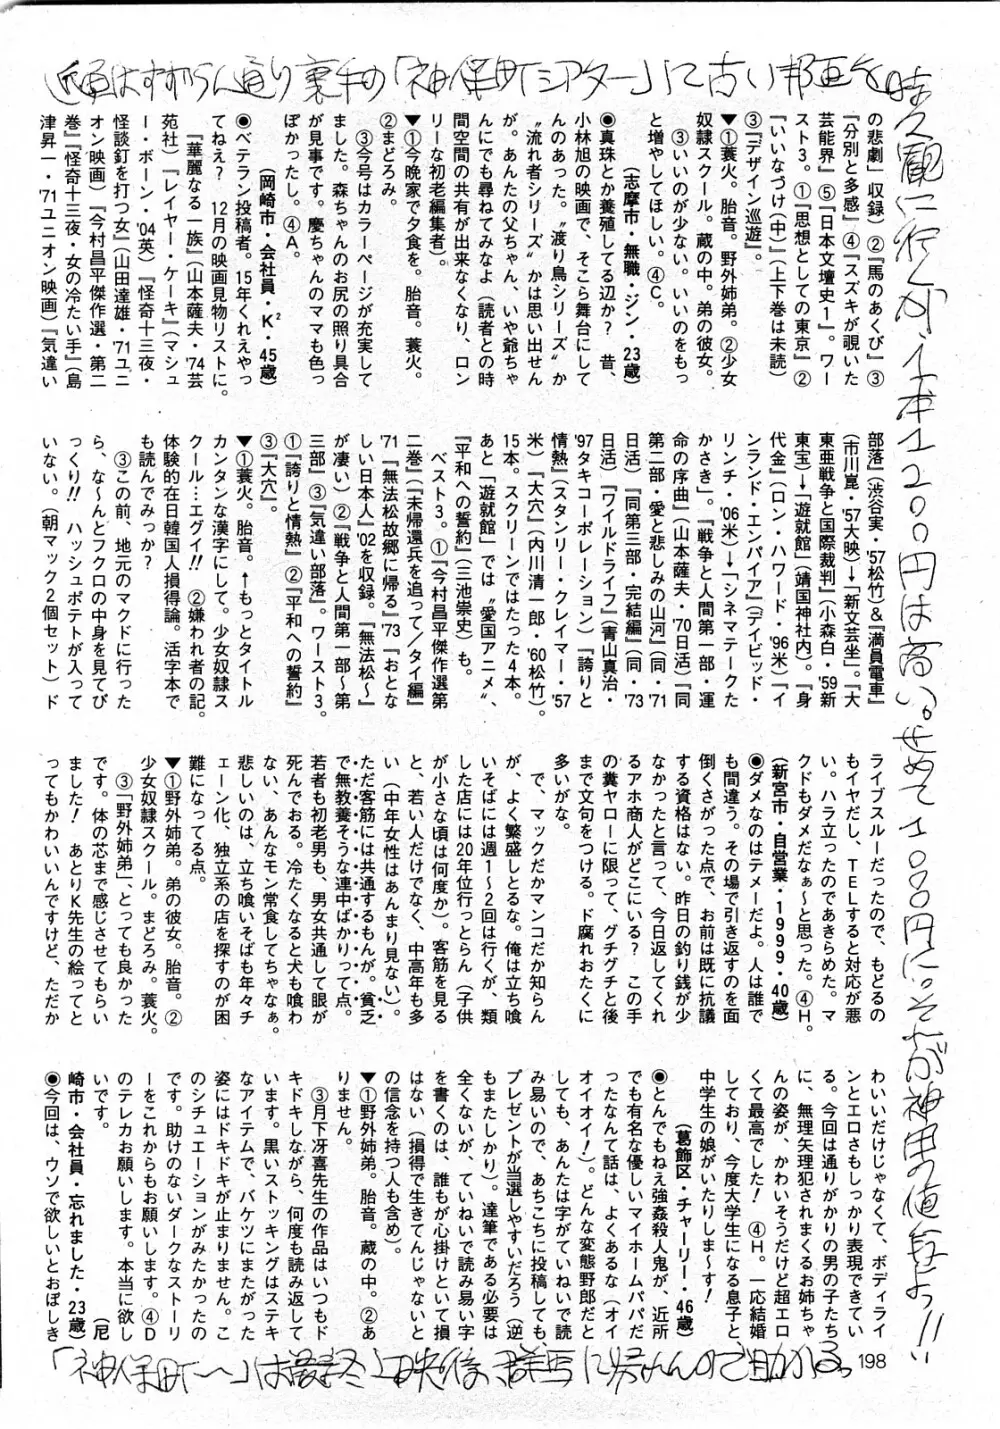 近頃はすずらん通り裏手の「神保町シアター」にて古い邦画を
時々観に行くが、1本1200円は高い。せめて1000円に。それが神田の値段よっ!!
の悲劇』収録)②『馬のあくび』③
『分別と多感』④『スズキが覗いた
芸能界』⑤『日本文壇史1』。ワー
スト3。①『思想としての東京』②
『いいなづけ(中)』(上下巻は未読)
③『デザイン巡遊』。
▼①蓑火。胎音。野外姉弟。②少女
奴隷スクール。蔵の中。弟の彼女。
③いいのが少ない。いいのをもっ
と増やしてほしい。④C。
(志摩市・無職・ジン・23歳)
◉真珠とか養殖してる辺か? 昔、
小林旭の映画で、そこら舞台にして
んのあった。〝渡り鳥シリーズ〟か
〝流れ者シリーズ〟かは思い出せん
が。あんたの父ちゃん、いや爺ちゃ
んにでも尋ねてみなよ(読者との時
間空間の共有が出来なくなり、ロン
リーな初老編集者)。
▼①今晩家で夕食を。胎音。蓑火。
②まどろみ。
③今号はカラーページが充実して
ました。森ちゃんのお尻の照り具合
が見事です。慶ちゃんのママも色っ
ぽかったし。④A。
(岡崎市・会社員・K²・45歳)
◉ベテラン投稿者。15年くれえやっ
てねえ? 12月の映画見物リストに。
『華麗なる一族』(山本薩夫・'74芸
苑社)『レイヤー・ケーキ』(マシュ
ー・ボーン・'04英)『怪奇十三夜・
怪談釘を打つ女』(山田達雄・'71ユニ
オン映画)『今村昌平傑作選・第二
巻』『怪奇十三夜・女の冷たい手』(島
津昇一・'71ユニオン映画)『気違い
部落』(渋谷実・'57松竹)&『満員電車』
(市川崑・'57大映)→「新文芸坐」。『大
東亜戦争と国際裁判』(小森白・'59新
東宝)→「遊就館」(靖国神社内)。『身
代金』(ロン・ハワード・'96米)『イ
ンランド・エンパイア』(デイビッド・
リンチ・'06米)→「シネマテークた
かさき」。『戦争と人間第一部・運
命の序曲』(山本薩夫・'70日活)『同
第二部・愛と悲しみの山河』(同・'71
日活)『同第三部・完結編』(同・'73
日活)『ワイルドライフ』(青山真治・
'97タキコーポレーション)『誇りと
情熱』(スタンリー・クレイマー・'57
米)『大穴』(内川清一郎・'60松竹)。
15本。スクリーンではたった4本。
あと「遊就館」では〝愛国アニメ〟、
『平和への誓約』(三池崇史)も。
ベスト3。①『今村昌平傑作選第
二巻』(『未帰還兵を追って/タイ編』
'71『無法松故郷に帰る』'73『おとな
しい日本人』'02を収録。『無法松〜』
が凄い)②『戦争と人間第一部〜第
三部』③『気違い部落』。ワースト3。
①『誇りと情熱』②『平和への誓約』
③『大穴』。
▼①蓑火。胎音。↑もっとタイトル
カンタンな漢字にして。少女奴隷ス
クール…エグイ!! ②嫌われ者の記。
体験的在日韓国人損得論。活字本で
も読んでみっか?
③この前、地元のマクドに行った
ら、な〜んとフクロの中身を見てび
っくり!! ハッシュポテトが入って
いない。(朝マック2個セット)ド
ライブスルーだったので、もどるの
もイヤだし、TELすると対応が悪
い。ハラ立ったのであきらめた。マ
クドもダメだなぁ〜と思った。④H。
(新宮市・自営業・1999・40歳)
◉ダメなのはテメーだよ。人は誰で
も間違う。その場で引き返すのを面
倒くさがった点で、お前は既に抗議
する資格はない。昨日の釣り銭が少
なかったと言って、今日返してくれ
るアホ商人がどこにいる? この手
の糞ヤロー に限って、グチグチと後
まで文句をつける。ド腐れおたくに
多いがな。
で、マックだかマンコだか知らん
が、よく繁盛しとるな。俺は立ち喰
いそばには週1〜2回は行くが、類
した店には20年位行っとらん(子供
が小さな頃は何度か)。客筋を見る
と、若い人だけでなく、中高年も多
い(中年女性はあんまり見ない)。
ただ客筋には共通するもんが。貧乏
で無教養そうな連中ばかりって点。
若者も初老男も、男女共通して眼が
死んでおる。冷たくなると犬も喰わ
ない、あんなモン常食してちゃなぁ。
悲しいのは、立ち喰いそばも年々チ
ェーン化、独立系の店を探すのが困
難になってる点。
▼①野外姉弟。弟の彼女。胎音。②
少女奴隷スクール。まどろみ。蓑火。
③「野外姉弟」、とっても良かった
です。体の芯まで感じさせてもらい
ました! あとりK先生の絵ってと
ってもかわいいんですけど、ただか
わいいだけじゃなくて、ボディライ
ンとエロさもしっかり表現できてい
くて最高でした! ④H。一応結婚
しており、今度大学生になる息子と、
中学生の娘がいたりしま〜す!
(葛飾区・チャーリー・46歳)
◉とんでもねえ強姦殺人鬼が、近所
でも有名な優しいマイホームパパだ
ったなんて話は、よくあるな(オイ
オイオイ!)。どんな変態野郎だと
しても、あんたは字がていねいで読
み易いので、あちこちに投稿しても、
プレゼントが当選しやすいだろう(逆
もまたしかり)。達筆である必要は
全くないが、ていねいで読み易い字
を書くのは、誰もが心掛けといて損
はない(損得で生きてんじゃないと
の信念を持つ人も含め)。
▼①野外姉弟。胎音。蔵の中。②あ
りません。
③月下冴喜先生の作品はいつもド
キドキしながら、何度も読み返して
います。黒いストッキングはステキ
なアイテムで、バケツにまたがった
姿にはドキドキが止まりません。こ
のシチュエーションがみたかったの
です。助けのないダークなストーリ
ーをこれからもお願いします。④D
のテレカお願いします。本当に欲し
いです。 (尼
崎市・会社員・忘れました・23歳)
◉今回は、ウソで欲しいとおぼしき
198
「神保町〜」は最終上映後、群馬に帰れんので助かる。